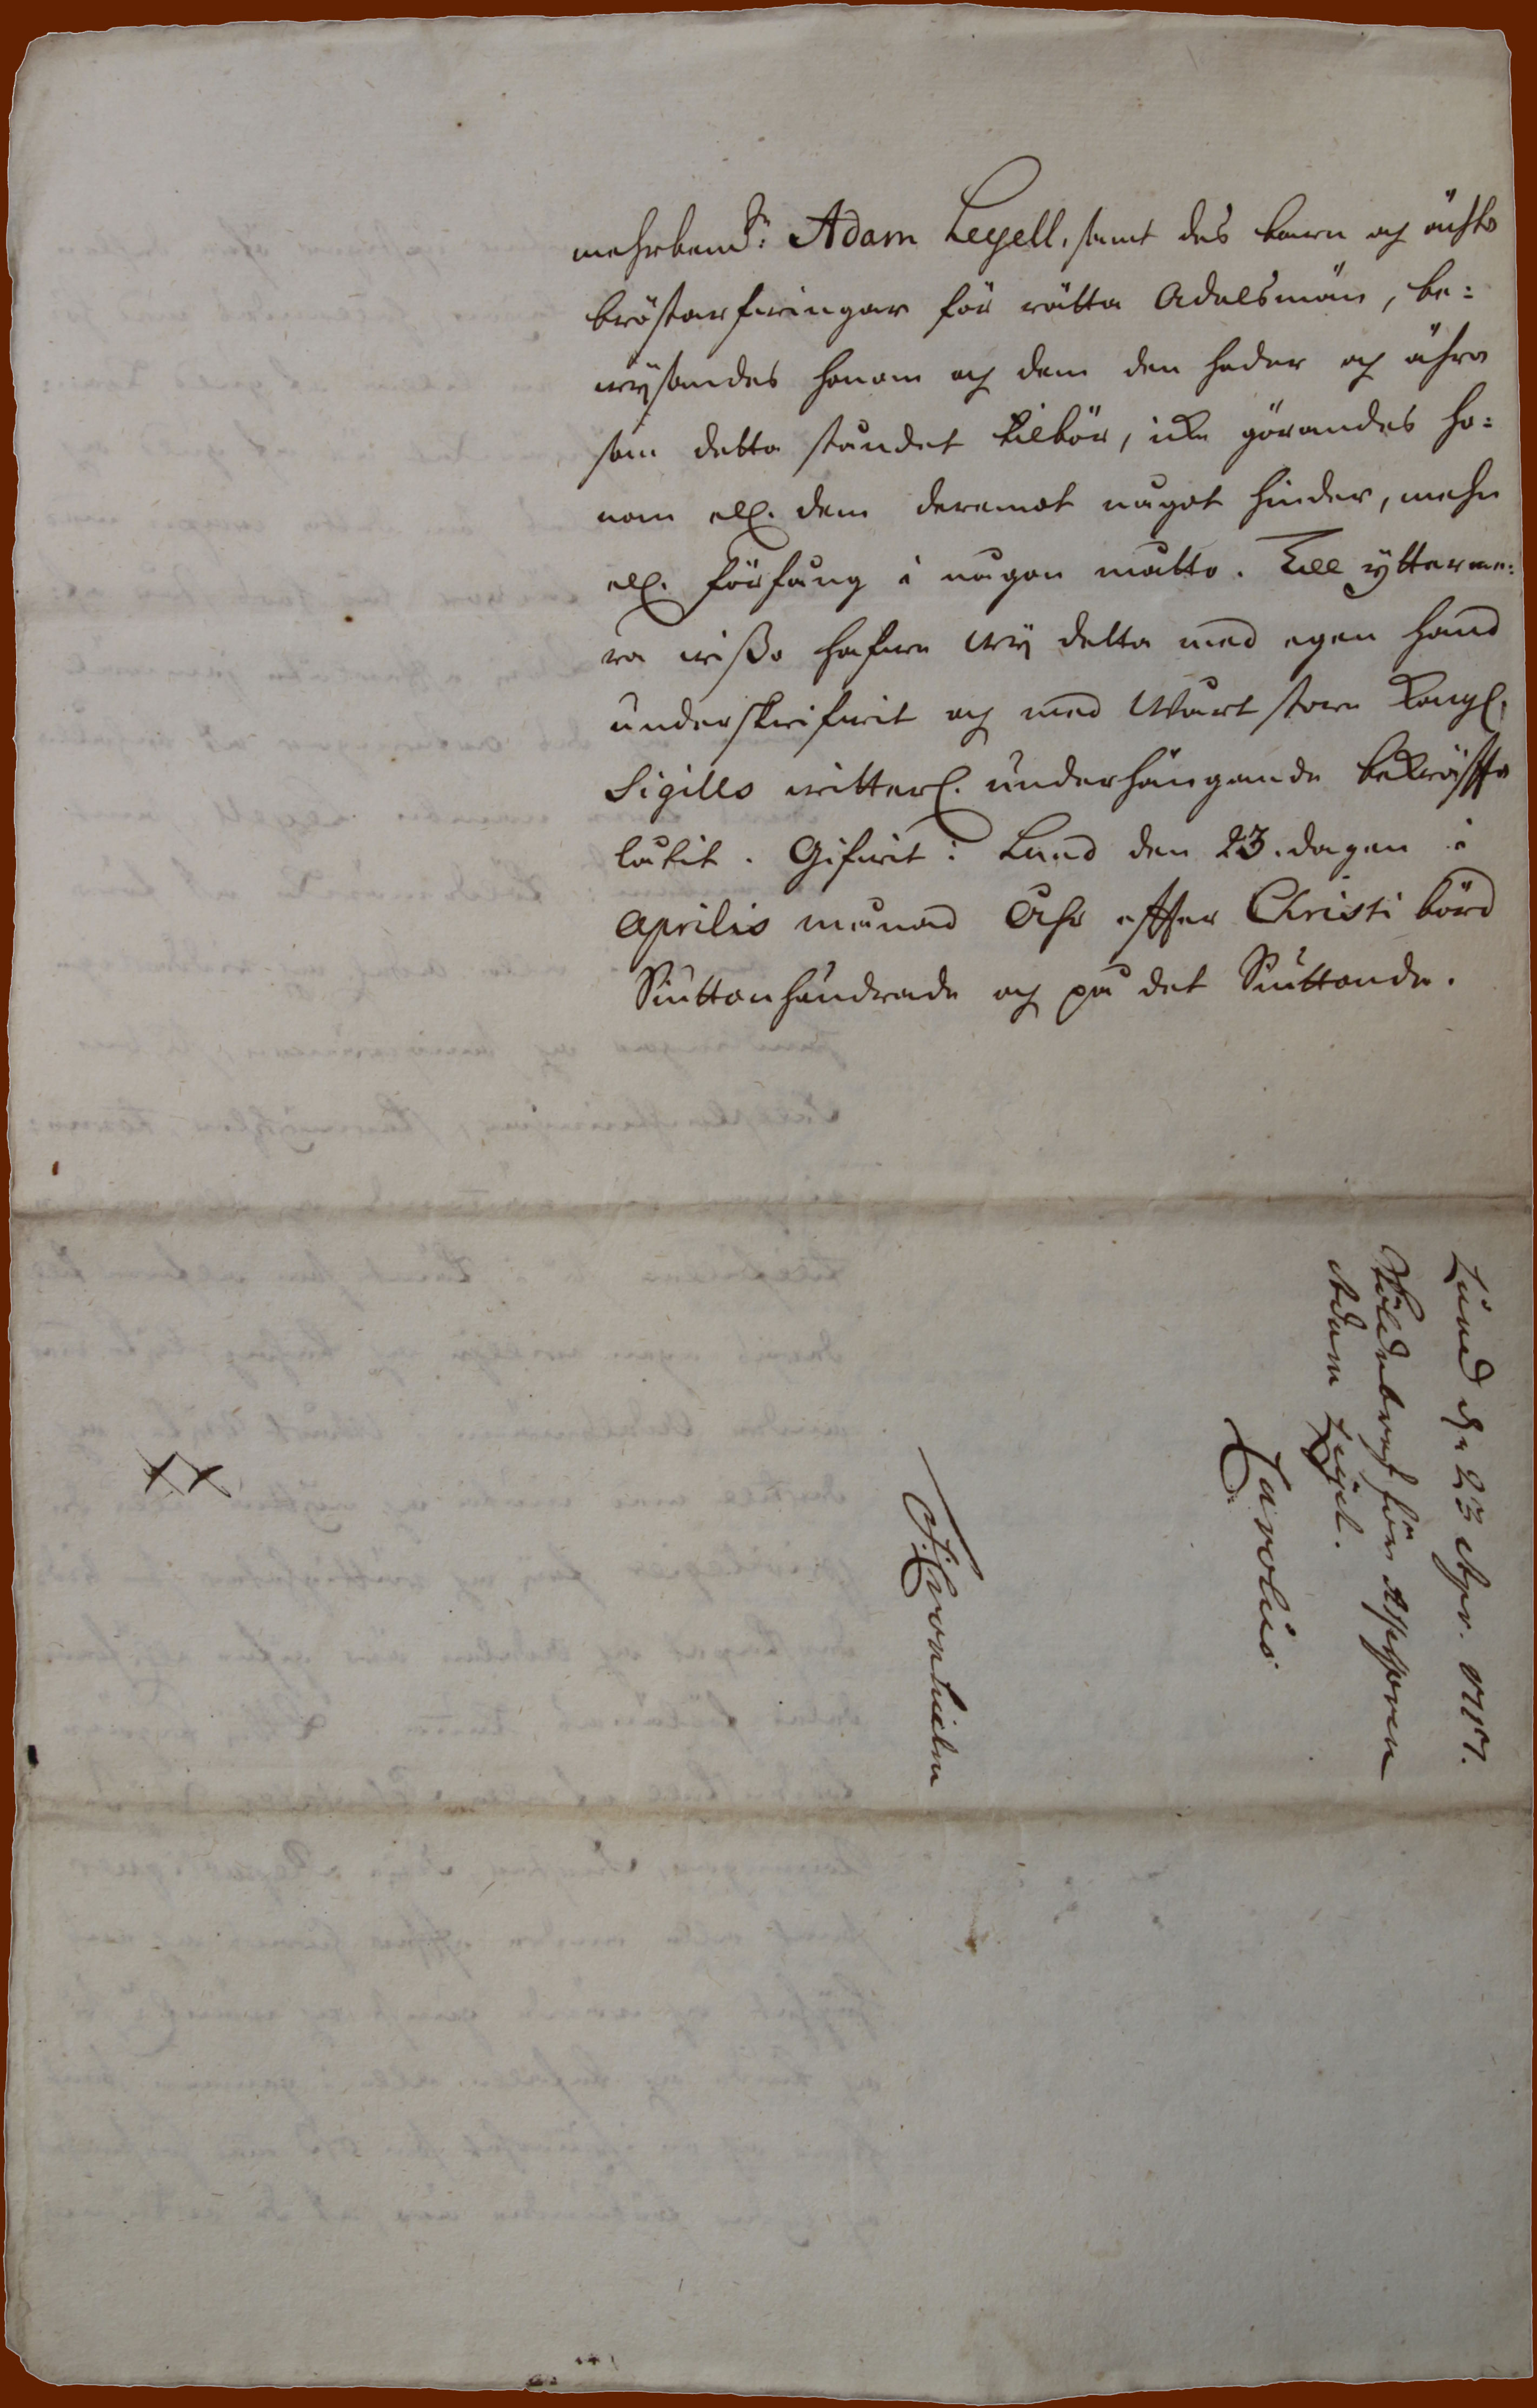 mehrbem:de Adam Leyell, samt des barn och ächta
bröstarfwingar för rätta Adelsmän, be=
wÿsandes honom och dem den heder och ähra
som detta ståndet tilbör, icke görandes ho=
nom ell. dem deremot något hinder, mehn
ell. förfång i någon matto. Till ÿtterme:
ra wißo hafwe Wÿ detta med egen hand
underskrifwit och med Wårt stora Kongl.
Sigills witterl. underhängande bekräffta
låtit. Gifwit i Lund den 23. dagen i
Aprilis månad Åhr effter Christi börd
Siuttonhundrade och på det Siuttonde.
Lund d. 23 Apr. 1717.
Sköldebref för Assessoren
Adam Leijel.
Carolus
S. Cronhielm